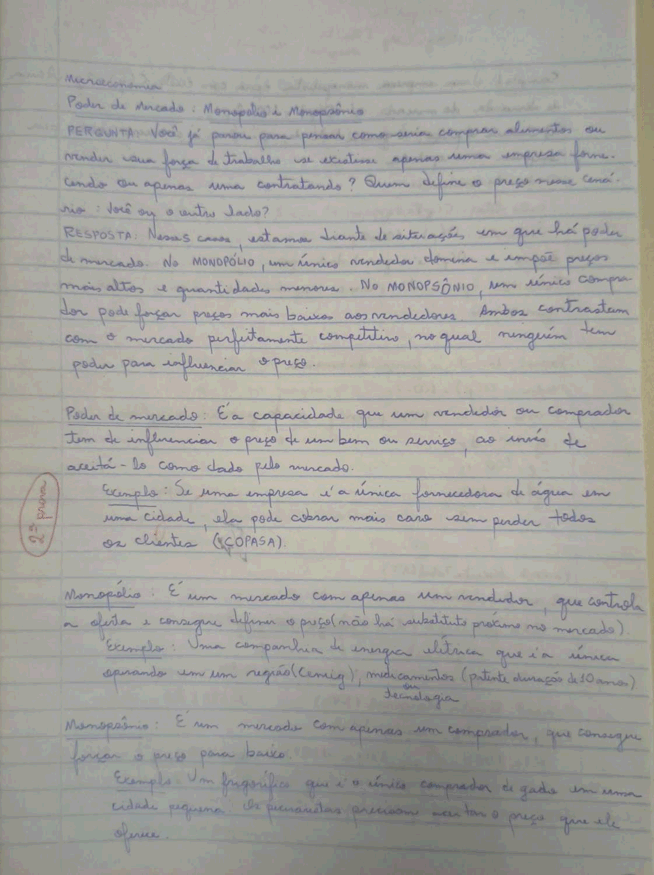 Microeconomia
Poder de Mercado: Monopólio e Monopsônio
PERGUNTA: Você já parou para pensar como seria comprar alimentos ou
vender sua força de trabalho se existisse apenas uma empresa forne-
cendo ou apenas uma contratando? Quem define o preço nesse cená-
rio: você ou o outro lado?
RESPOSTA: Nesses casos, estamos diante de situações em que há poder
de mercado. No MONOPÓLIO, um único vendedor domina e impõe preços
mais altos e quantidades menores. No MONOPSÔNIO, um único compra-
dor pode forçar preços mais baixos aos vendedores. Ambos contrastam
com o mercado perfeitamente competitivo, no qual ninguém tem
poder para influenciar o preço.
Poder de mercado: É a capacidade que um vendedor ou comprador
tem de influenciar o preço de um bem ou serviço, ao invés de
aceitá-lo como dado pelo mercado.
Exemplo: Se uma empresa é a única fornecedora de água em
uma cidade, ela pode cobrar mais caro sem perder todos
os clientes (COPASA).
2ª prova
Monopólio: É um mercado com apenas um vendedor, que controla
a oferta e consegue definir o preço (não há substituto próximo no mercado)
Exemplo: Uma companhia de energia elétrica que é a única
operando em um região (Cemig), medicamentos (patente duração de 10 anos)
ou
tecnologia
Monopsônio: É um mercado com apenas um comprador, que consegue
forçar o preço para baixo.
Exemplo: Um frigorífico que é o único comprador de gado em uma
cidade pequena. Os pecuaristas precisam aceitar o preço que ele
oferece.